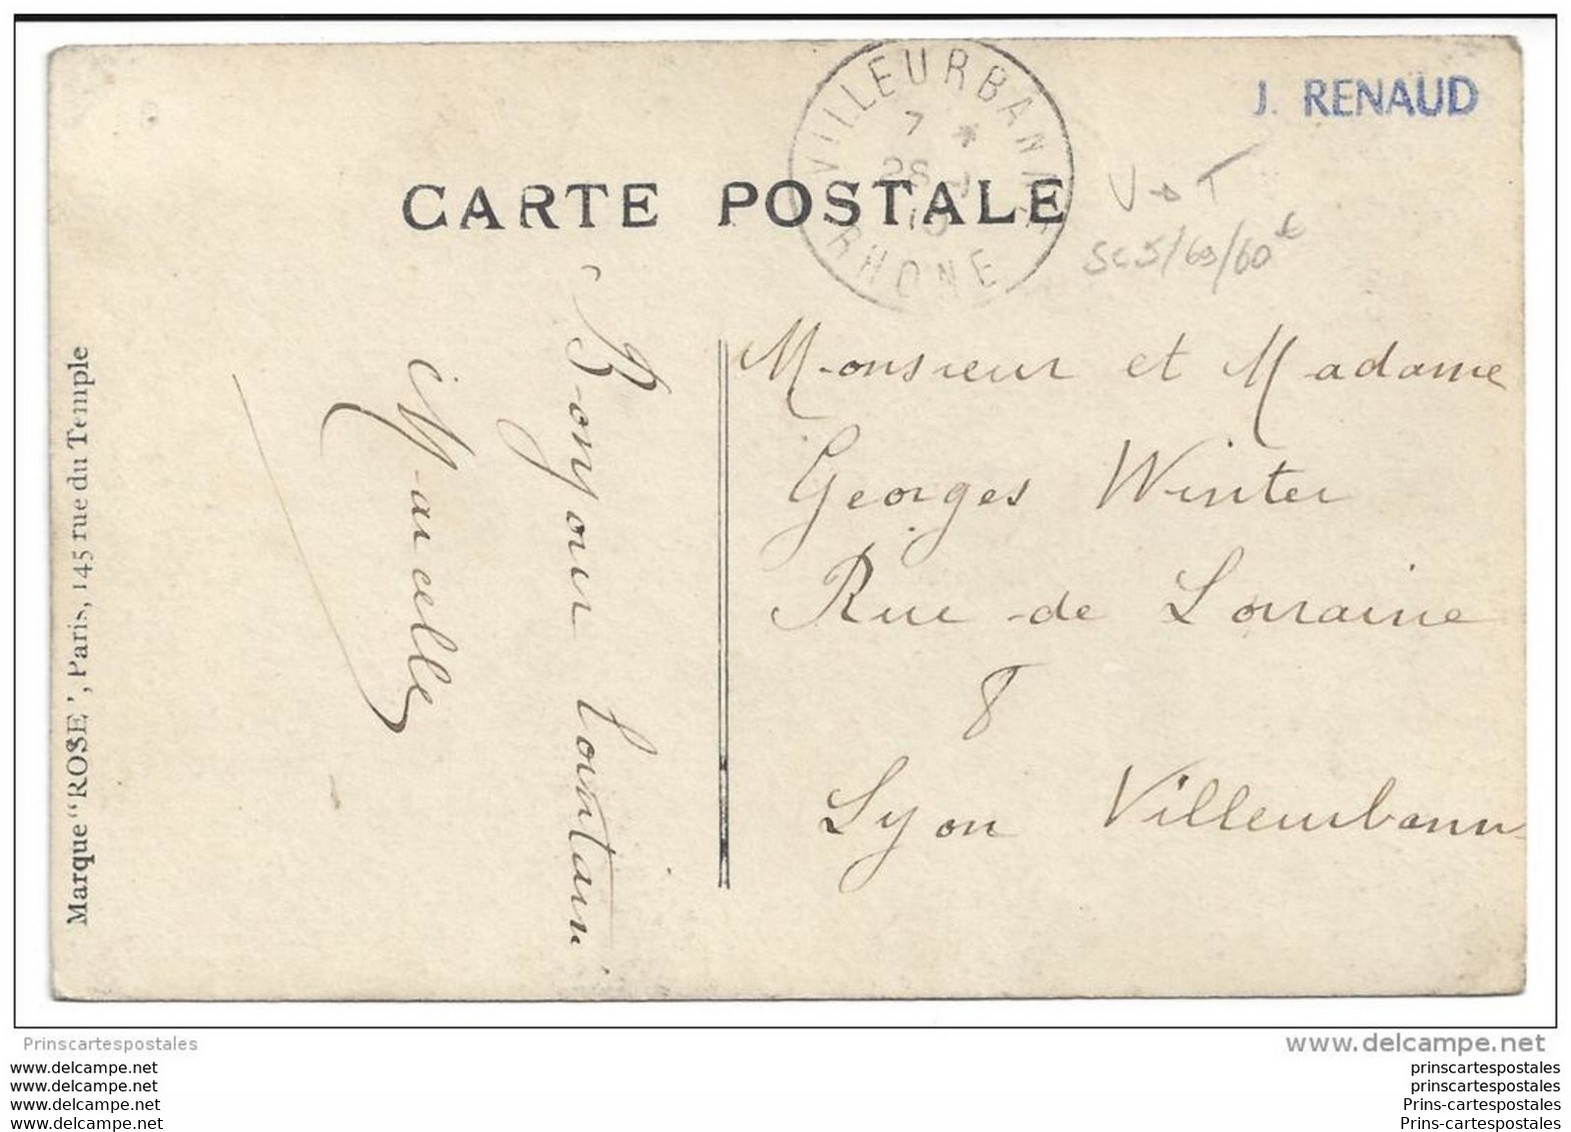 J. RENAUD
VILLEURBANNE
7 *
28
RHONE
CARTE POSTALE
V → T
Sc5/69/60€
Monsieur et Madame
Georges Winter
Rue de Lorraine
8
Lyon Villeurbanne
Bonjour Lointain
Marcelle
Marque "ROSE", Paris, 145 rue du Temple
Prinscartespostales
www.delcampe.net
www.delcampe.net
www.delcampe.net
www.delcampe.net
www.delcampe.net
prinscartespostales
prinscartespostales
Prins-cartespostales
Prins-cartespostales